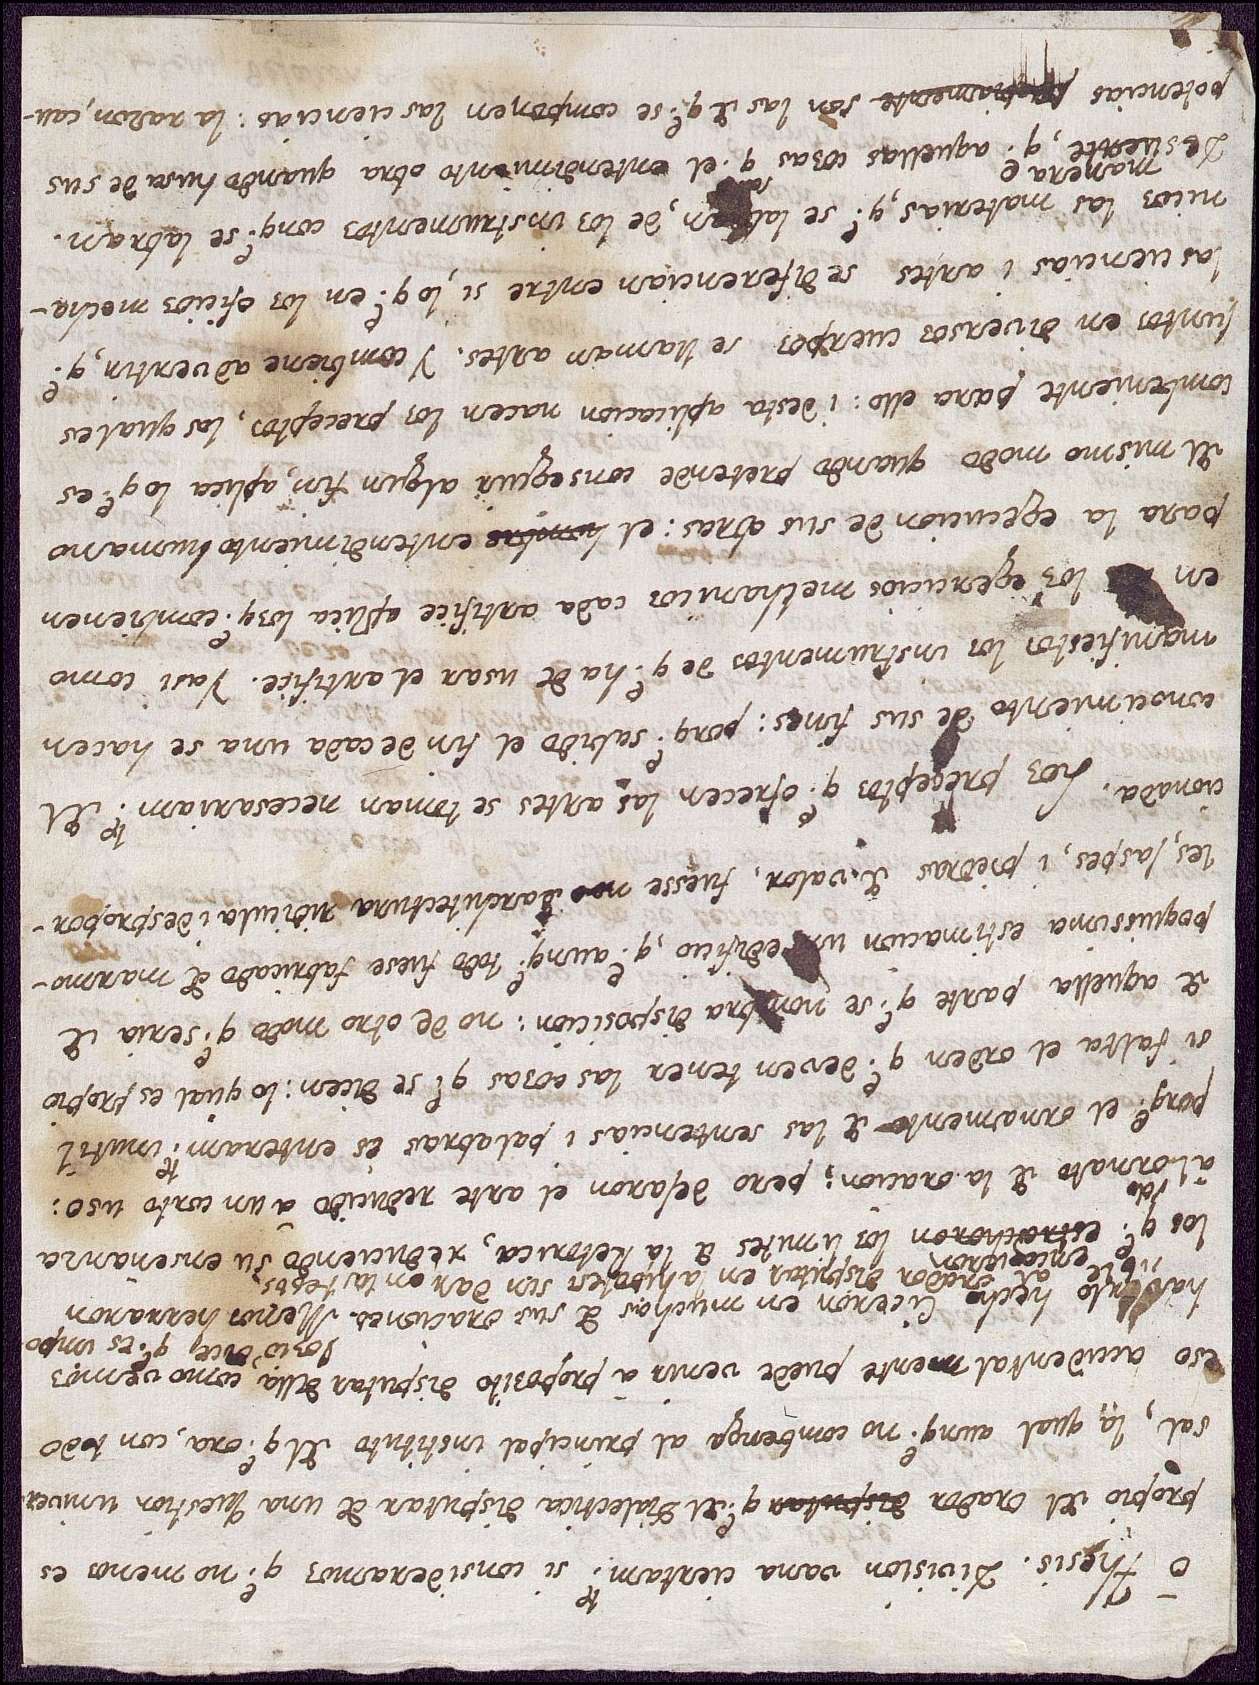 o Thesis. Division vana ciertam.te si consideramos q.e no menos es
propio del orador disputar q.e del Dialectica disputar de una question univer-
sal, la qual aunq.e no combenga al principal instituto del q.e ora, con todo
eso accidentalmente puede venir a proposito disputar della, como vemos
haverlo hecho Ciceron en muchas de sus oraciones. Menos herraron
Socio dice q.e es impo
ible al orador disputar en las hipotesi sin dar en las tesis.
los q.e estrecharon los limites de la Retorica, reduciendo su ensenanza
encogieron
todo
al ornato de la oracion; pero dejaron el arte reducido a un corto uso:
porq.e el ornamento de las sentencias i palabras es enteram.te inutil
si falta el orden q.e deven tener las cosas q.e se dicen: lo qual es propio
de aquella parte q.e se nombra disposicion: no de otro modo q.e seria de
poquissima estimacion un edificio, q.e aunq.e todo fuese fabricado de marmo-
les, jaspes, i piedras de valor, fuesse de architectura ridicula i despropor-
cionada. Los preceptos q.e ofrecen las artes se toman necesariam.te del
conocimiento de sus fines: porq.e sabido el fin de cada una se hacen
manifiestos los instrumentos de q.e ha de usar el artifice. Y asi como
en los egercicios mechanicos cada artifice aplica los q.e combienen
para la egecucion de sus obras: el hombre entendimiento humano
del mismo modo quando pretende conseguir algun fin, aplica lo q.e es
combeniente para ello: i desta aplicacion nacen los preceptos, los quales
juntos en diversos cuerpos se llaman artes. Y combiene advertir, q.e
las ciencias i artes se diferencian entre si, lo q.e en los oficios mecha-
nicos las materias, q.e se labran, de los instrumentos conq.e se labran.
manera
De suerte, q.e aquellas cosas q.e el entendimiento obra quando husa de sus
potencias propiamente son las de q.e se componen las ciencias: la razon, cau-